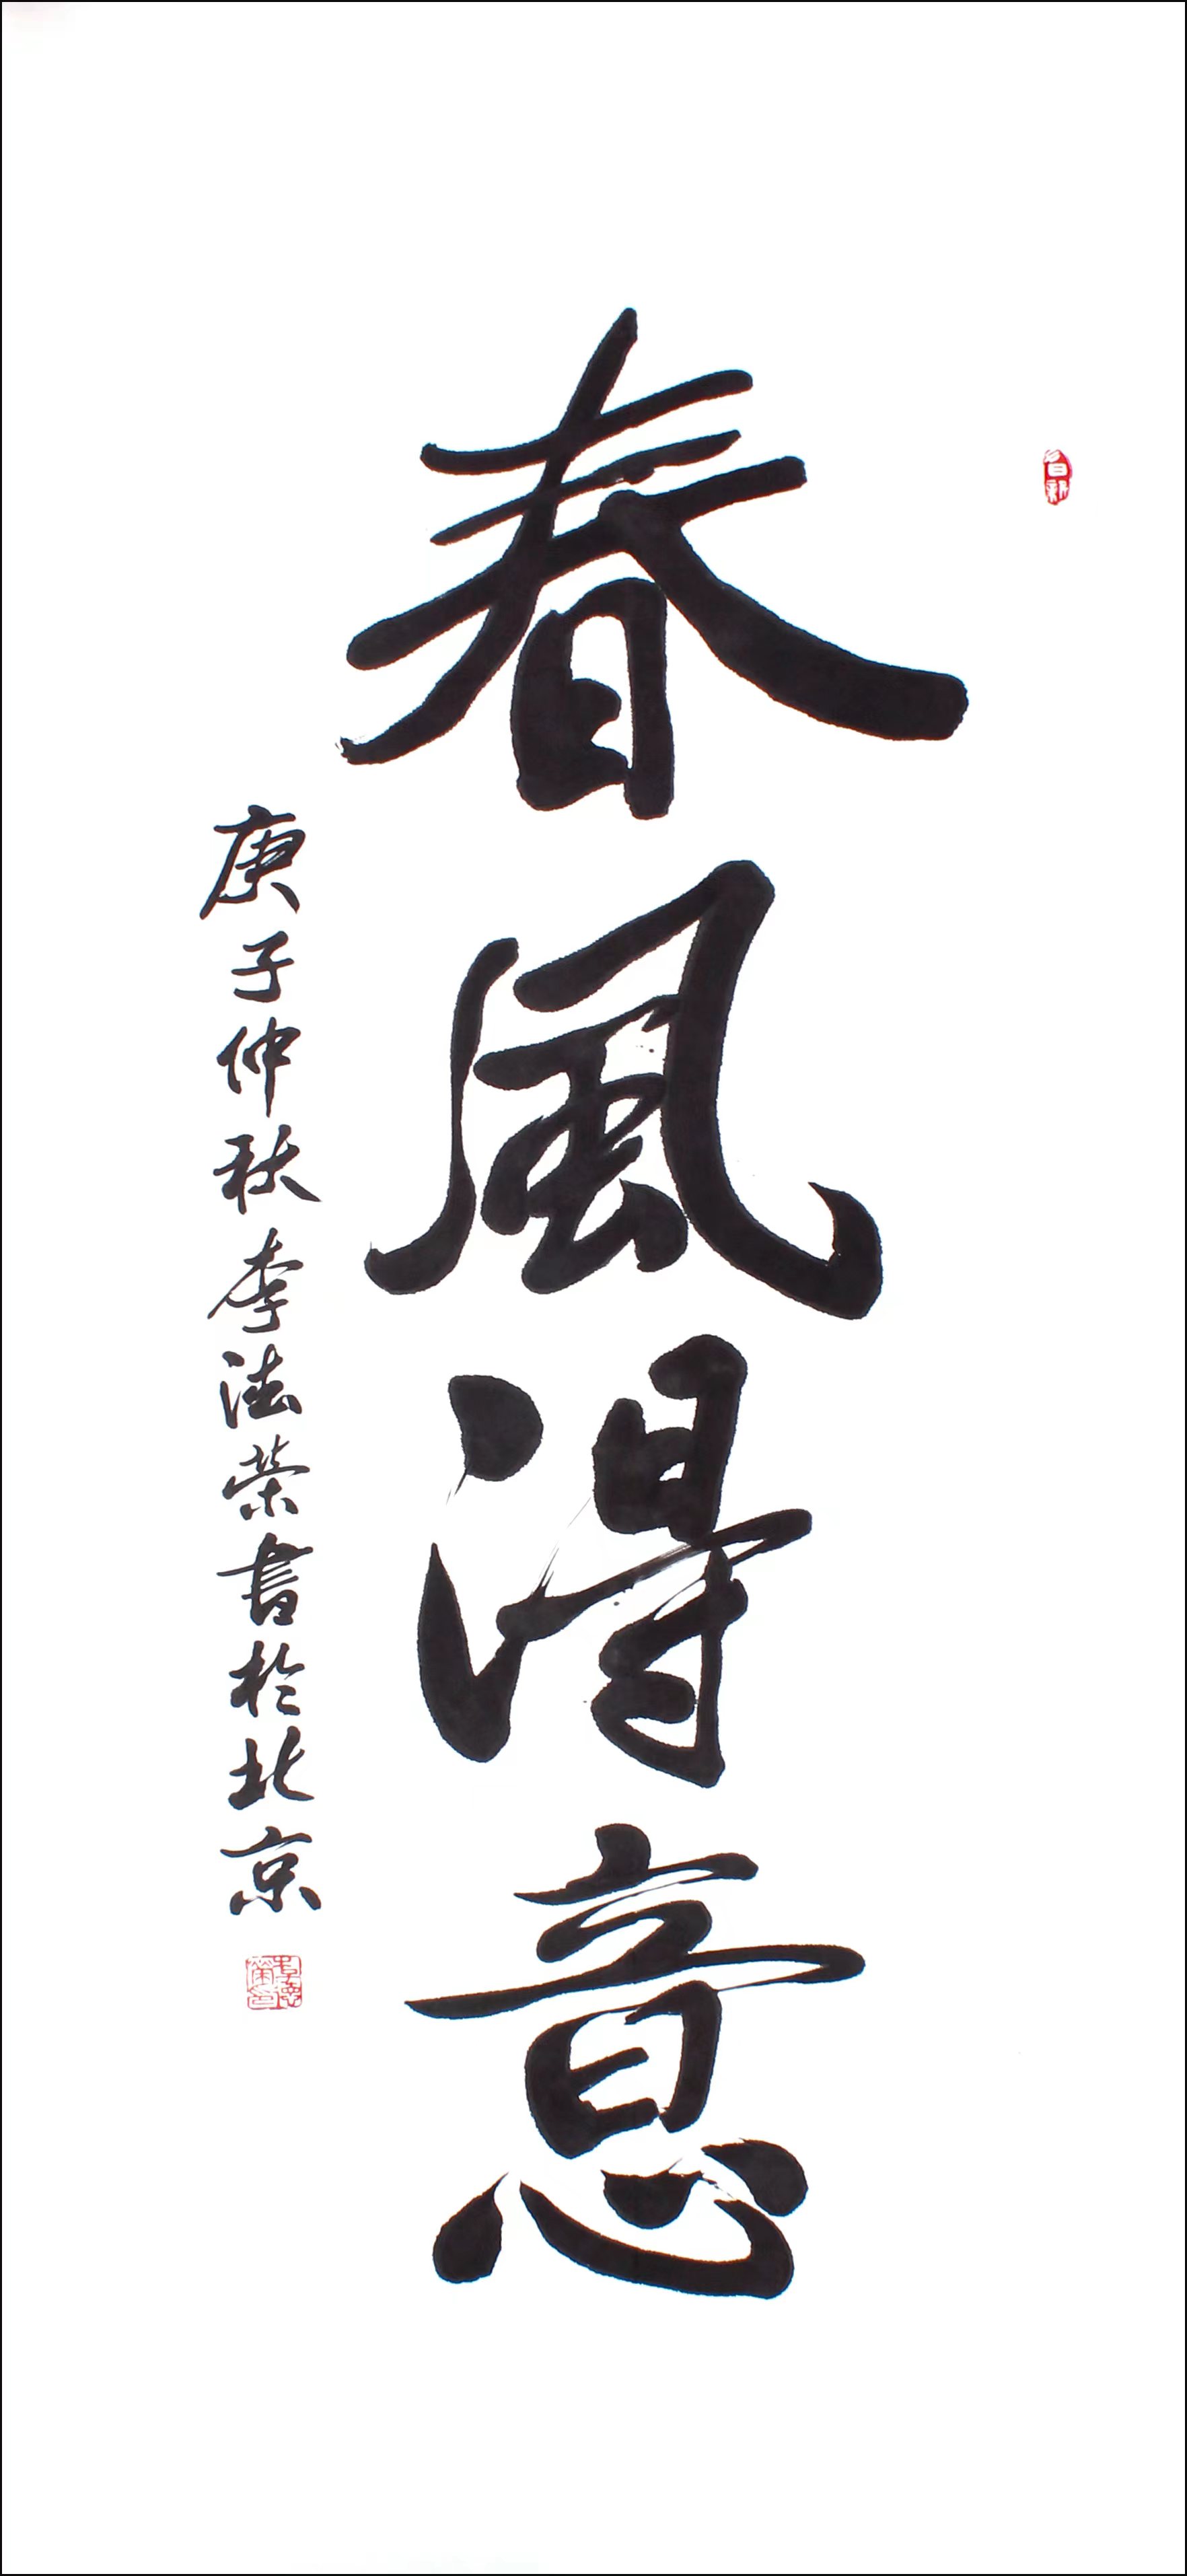 春風得意
庚子仲秋李法荣書於北京